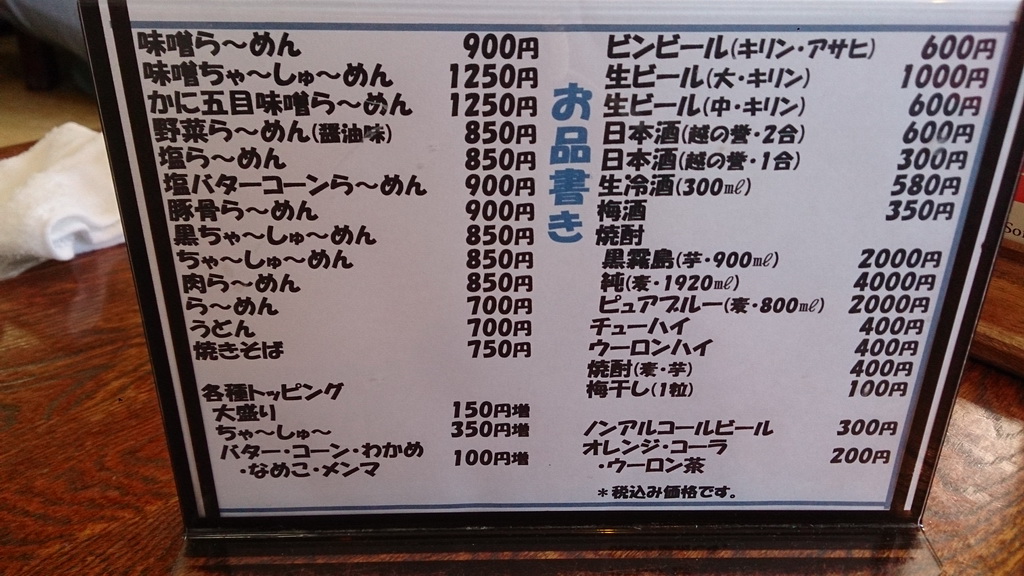 味噌ら～めん 900円
味噌ちゃ～しゅ～めん 1250円
かに五目味噌ら～めん 1250円
野菜ら～めん(醤油味) 850円
塩ら～めん 850円
塩バターコーンら～めん 900円
豚骨ら～めん 900円
黒ちゃ～しゅ～めん 850円
ちゃ～しゅ～めん 850円
肉ら～めん 850円
ら～めん 700円
うどん 700円
焼きそば 750円
各種トッピング
大盛り 150円増
ちゃ～しゅ～ 350円増
バター・コーン・わかめ
・なめこ・メンマ 100円増
お品書き
ビンビール(キリン・アサヒ) 600円
生ビール(大・キリン) 1000円
生ビール(中・キリン) 600円
日本酒(越の誉・2合) 600円
日本酒(越の誉・1合) 300円
生冷酒(300㎖) 580円
梅酒 350円
焼酎
黒霧島(芋・900㎖) 2000円
純(麦・1920㎖) 4000円
ピュアブルー(麦・800㎖) 2000円
チューハイ 400円
ウーロンハイ 400円
焼酎(麦・芋) 400円
梅干し(1粒) 100円
ノンアルコールビール 300円
オレンジ・コーラ
・ウーロン茶 200円
＊税込み価格です。